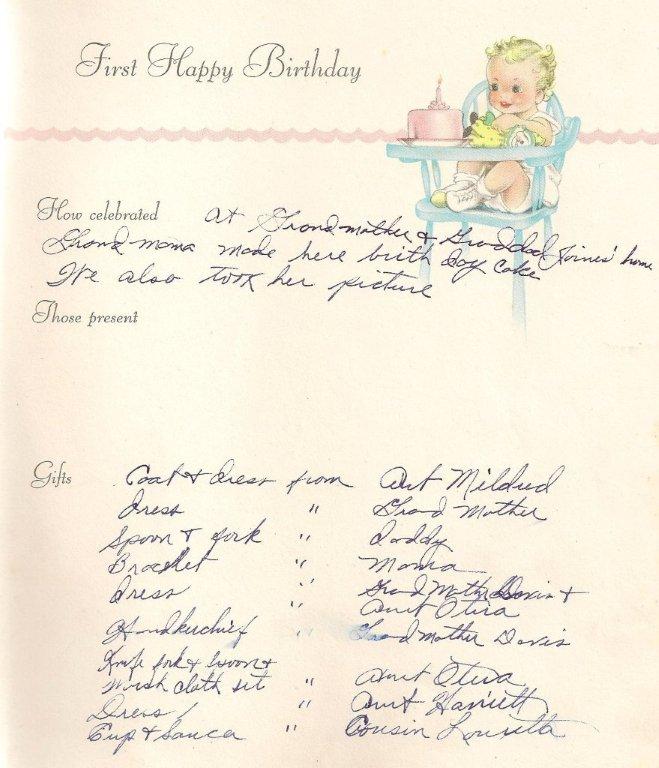 First Happy Birthday
How celebrated At Grandmother & Graddad Joines' home
Grand moma made here birth Day Cake
We also took her picture
Those present
Gifts Coat & dress from Aut Mildred
Dress " Grand Mother
Spoon & fork " Daddy
Bracelet " Moma
Dress " Grand Mother Davis &
Aunt Otira
Handkerchief " Grand Mother Davis
Knife fork & spoon &
Wash cloth set " Aunt Otiva
Dress " Aunt Harriett
Cup & Sauca " Cousin Louretta